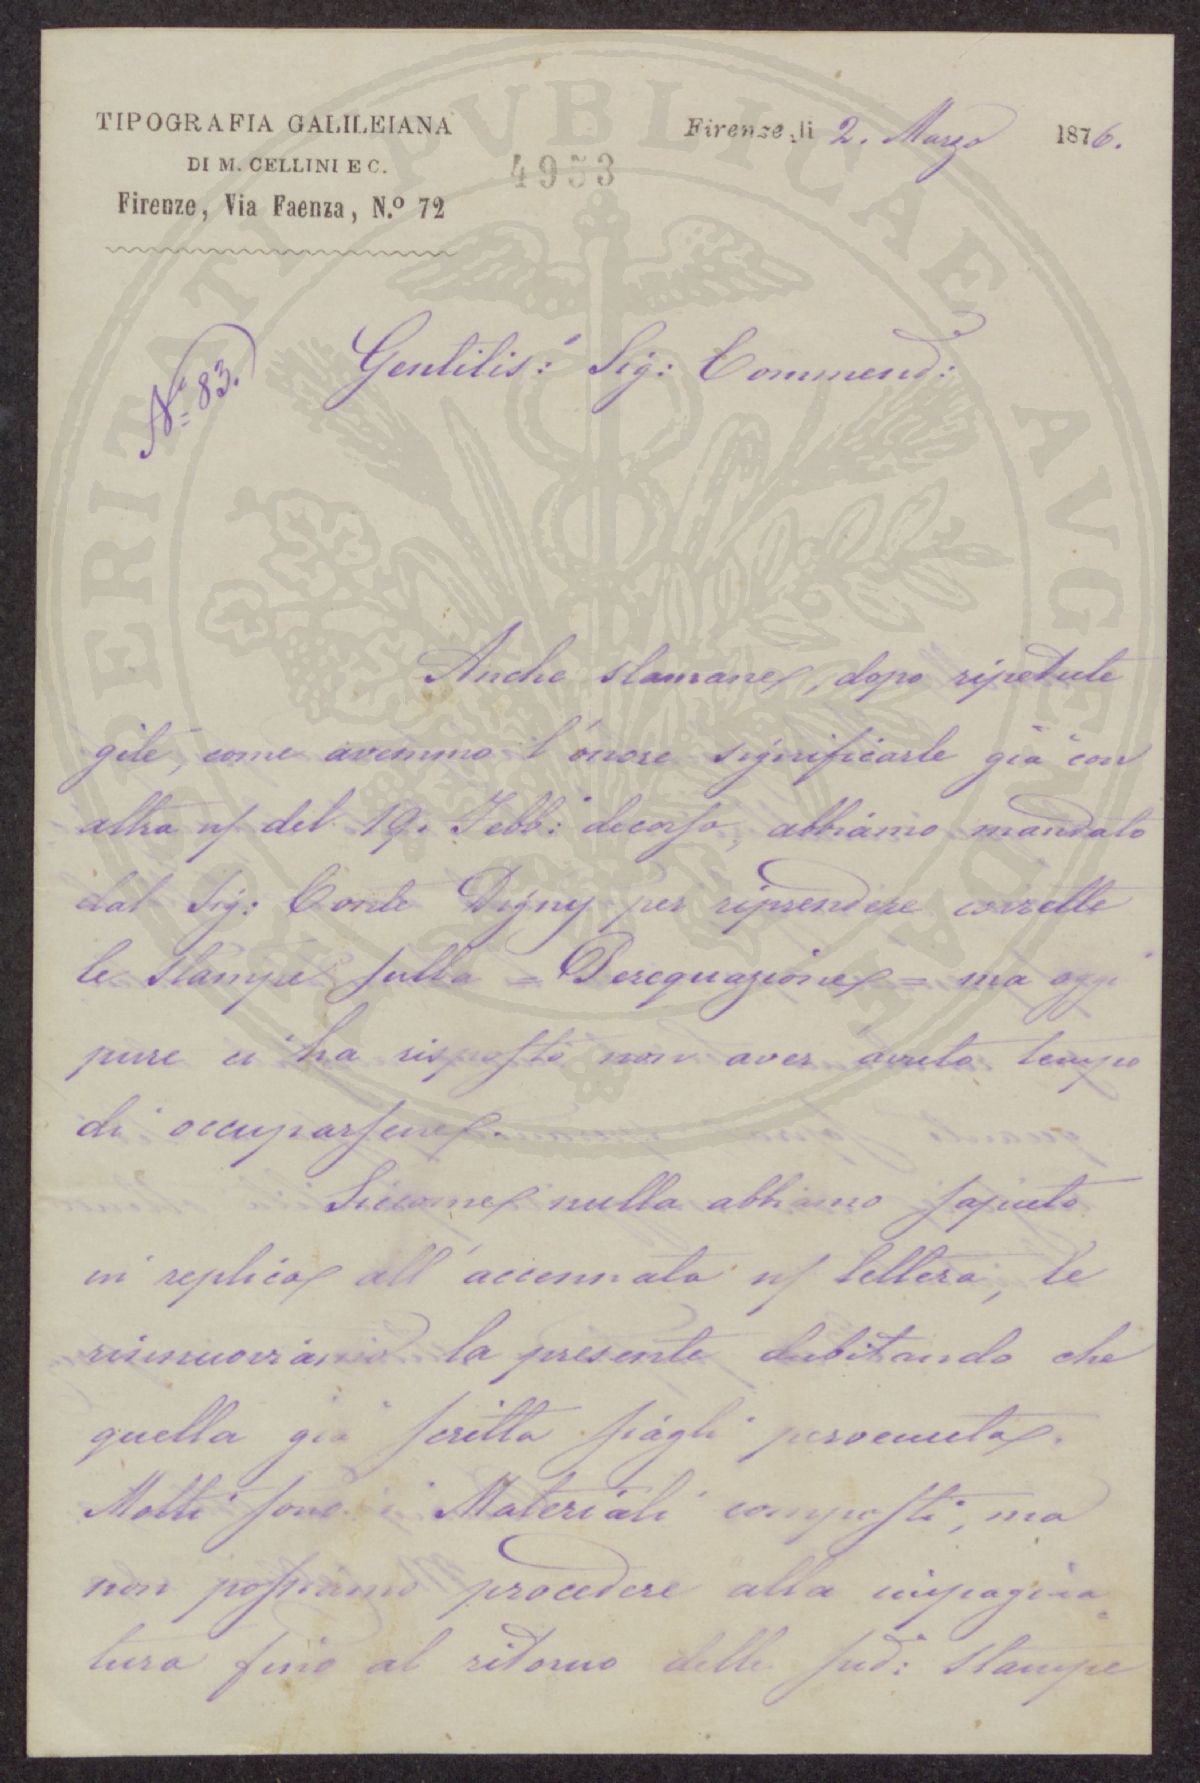 TIPOGRAFIA GALILEIANA
DI M. CELLINI E C.
Firenze, Via Faenza, N.º 72
Firenze, li 2. Marzo 1876.
4953
N.º 83.
Gentilis: Sig: Commend:
Anche stamane, dopo ripetute
gite, come avemmo l'onore significarle già con
altra n/ del 19. Febb: decorso, abbiamo mandato
dal Sig: Conte Digny per riprendere corrette
le stampe sulla = Perequazione = ma oggi
pure ci ha risposto non aver avuto tempo
di occuparsene.
Siccome nulla abbiamo saputo
in replica all'accennata n/ lettera, le
rinnuoviamo la presente dubitando che
quella già scritta siagli pervenuta.
Molti sono i Materiali composti, ma
non possiamo procedere alla impagina=
tura fino al ritorno delle sud: stampe